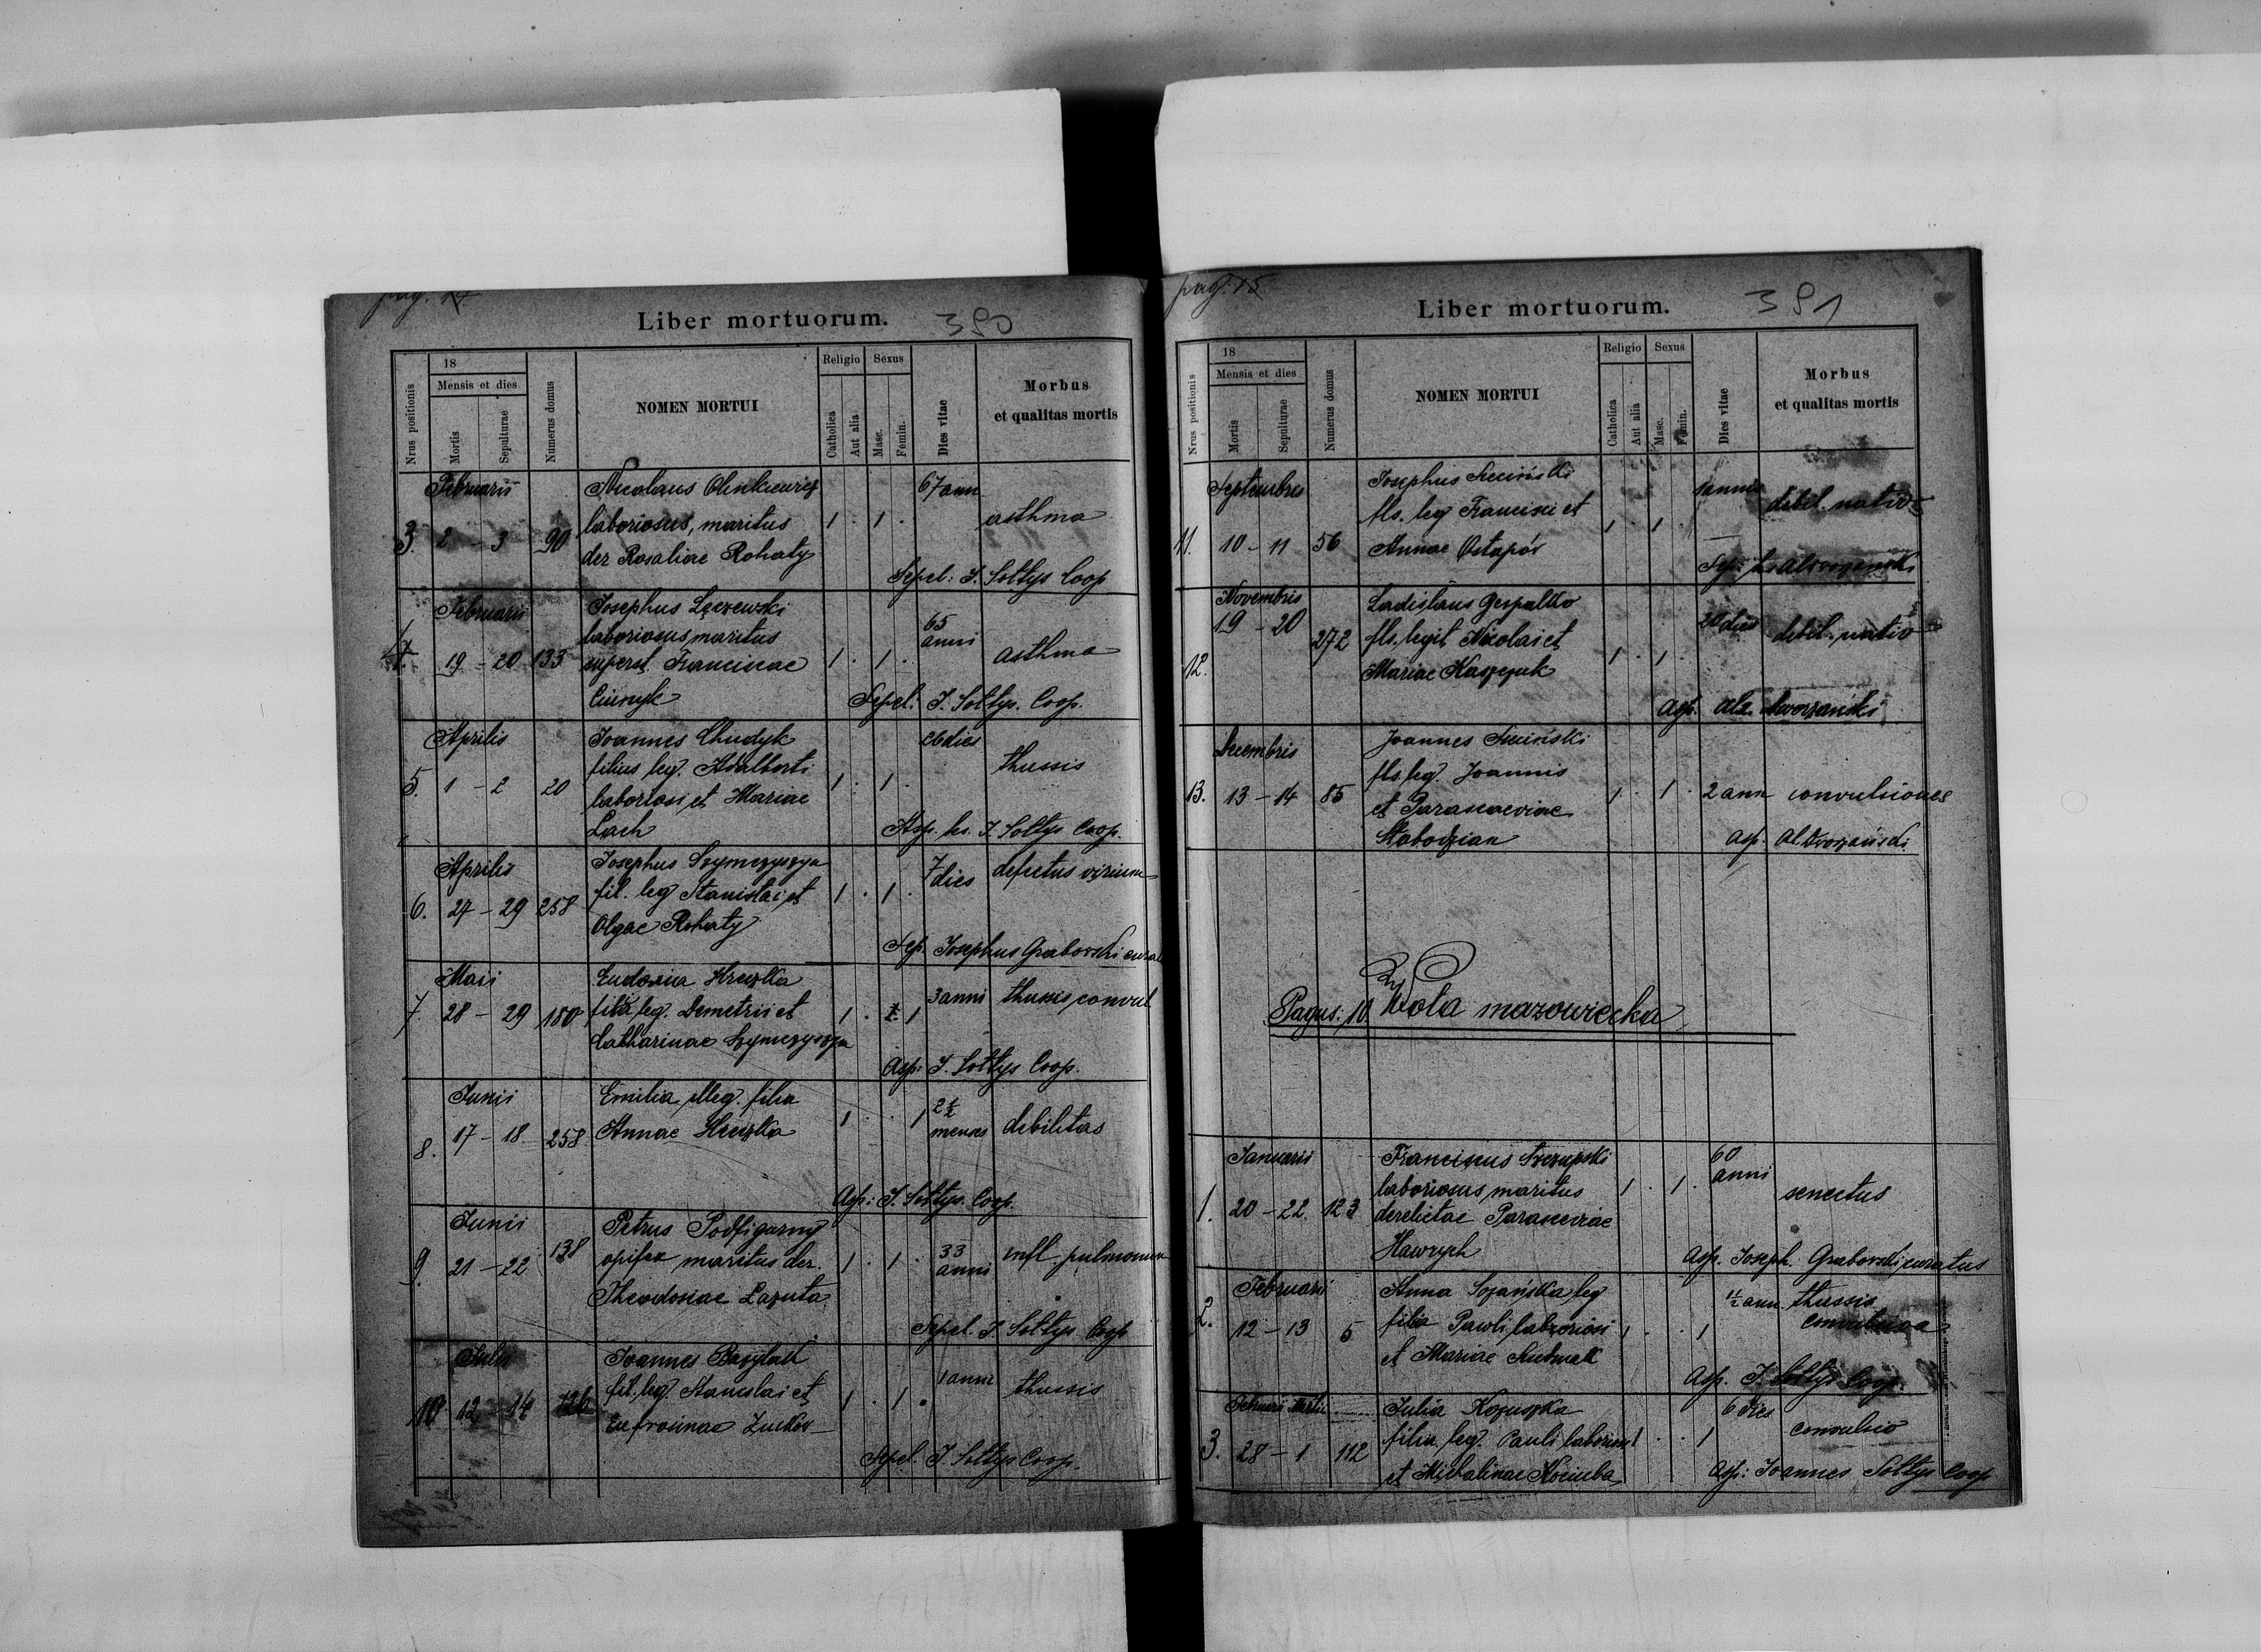 pag. 14.
Liber mortuorum. 380
Nrus positionis
18
Mensis et dies
Mortis
Sepulturae
Numerus domus
NOMEN MORTUI
Religio
Catholica
Aut alia
Sexus
Masc.
Femin.
Dies vitae
Morbus
et qualitas mortis
Februarii
3. 2 - 3 90
Nicolaus Olenkiewicz
laboriosus, maritus
der Rosaliae Rohaty
1 . 1 .
67 ann
asthma
Sepel: I. Sołtys Coop
Februarii
4. 19 - 20 133
Josephus Łęczewski
laboriosus maritus
superst. Franciscae
1 . 1 .
65
anni
asthma
Sepel: I. Sołtys. Coop.
Aprilis
5. 1 - 2 20
Joannes Chudyk
filius leg. Adalberti
laboriosi et Mariae
Lach
1 . 1 .
26 dies
thussis
Asp. hs. I. Sołtys Coop.
Aprilis
6. 27 - 29 258
Josephus Szymczyszyn
fil. leg Stanislai et
Olgae Rohaty
1 . 1 .
7
dies
defectus virium
Sep. Josephus Grabowski
Maii
7. 28 - 29 180
Eudoxia Hruszka
filia leg. Demetrii et
Catharinae Szymczyszyn
1 . 1
3 anni
thussis convul
Asp: I. Sołtys Coop.
Junii
8. 17 - 18 258
Emilia illeg. filia
Annae Hruszka
1 . . 1
2 1/2
menses
debilitas
Asp: I. Sołtys. Coop.
Junii
9. 21 - 22 138
Petrus Podfigurny
opifex maritus der.
Theodosiae Lazuta
1 . 1 .
33
anni
infl pulmonum
Sepel. I. Sołtys Coop
Julii
10 12 - 14
Joannes
fil. leg. Stanislai et
Eufrosinae Zuckow
1 . 1 .
1 anni
thussis
Sepel. I. Sołtys Coop.
pag. 15
Liber mortuorum. 381
Nrus positionis
18
Mensis et dies
Mortis
Sepulturae
Numerus domus
NOMEN MORTUI
Religio
Catholica
Aut alia
Sexus
Masc.
Femin.
Dies vitae
Morbus
et qualitas mortis
Septembris
11. 10 - 11 56
Josephus
fls. leg Francisci et
Annae Ostapów
1 . 1 .
1 annus
debil. nativ
Novembris
12. 19 - 20 272
Ladislaus
fls. legit Nicolai et
Mariae Kaszczuk
1 . 1 .
20 dies
debil. nativ
Asp. Alz. Dworzański
Decembris
13. 13 - 14 85
Joannes
fls. leg. Joannis
et Parascaeviae
Słobodzian
1 . 1 .
2 ann
convulsiones
Asp. Al. Dworzański.
Pagus: 10 Wola mazowiecka
Januarii
1. 20 - 22. 123
Franciscus Szczupski
laboriosus maritus
derelictae Parasceviae
Hawrych
1 . 1 .
60
anni
senectus
Asp. Joseph. Grabowski curatus
Februarii
2. 12 - 13 5
Anna Sozańska leg
filia Pawli laboriosi
et Mariae
1 . . 1
1/2 ann.
thussis
convulsiva
Asp. I. Sołtys Coop.
Februarii Martii
3. 28 - 1 112
Julia Kozuszka
filia leg. Pauli laboriosi
et Michalinae Kociuba
1 . . 1
6 dies
convulsio
Asp: Joannes Sołtys Coop